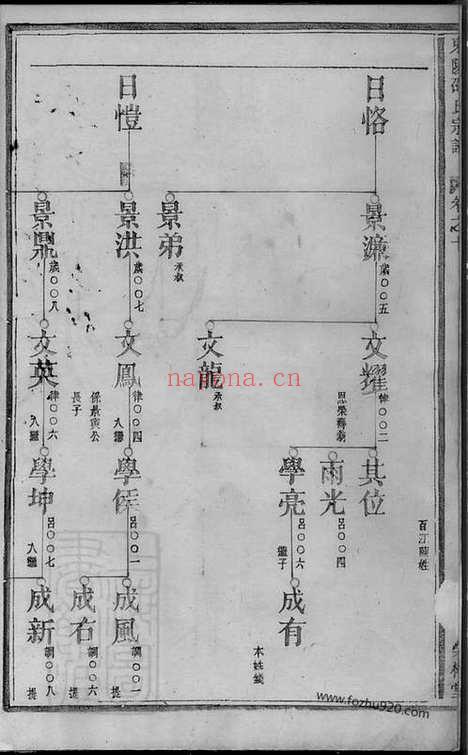 日恪
景濂
歲〇〇五
景弟
承叔
文耀
律〇〇二
恩榮
文龍
承叔
其位
雨光
呂〇〇四
學亮
呂〇〇六
繼子
成有
本姓
日愷
景洪
歲〇〇七
景鼎
歲〇〇八
文鳳
律〇〇四
入繼
係景
公
長子
文英
律〇〇六
入繼
呂〇〇一
學坤
呂〇〇七
入繼
成風
調〇〇一
提
成右
調〇〇六
提
成新
調〇〇八
提
nayona.cn
www.fozhu920.com